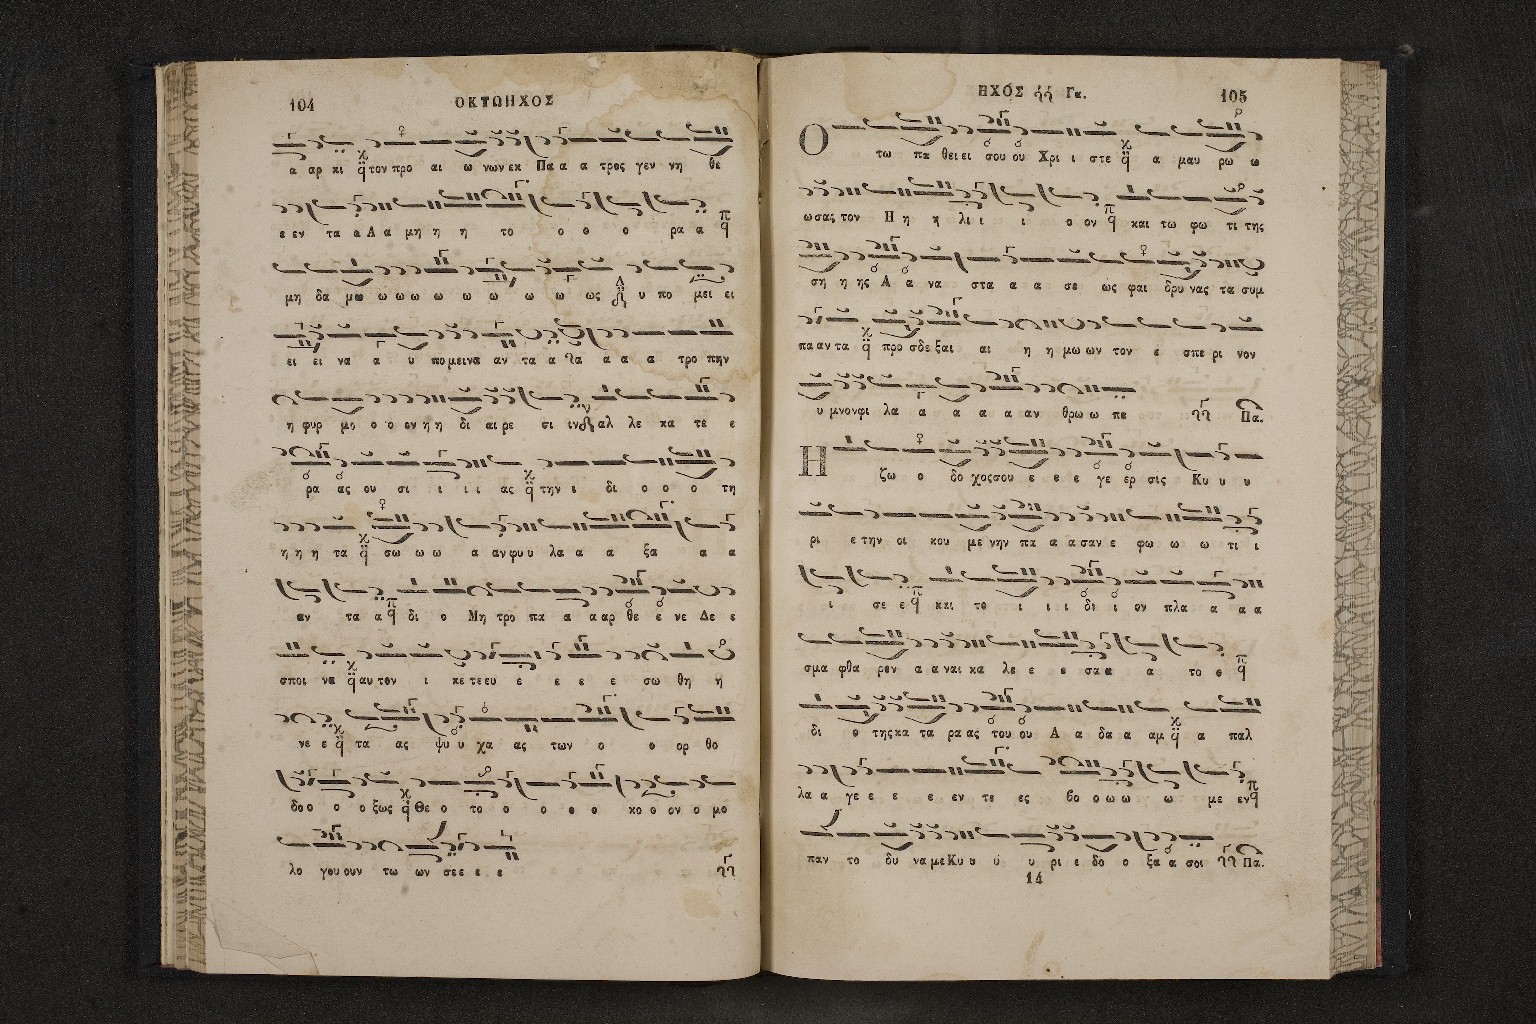 104
ΟΚΤΩΗΧΟΣ
α αρ κι τον προ αι ω νων εκ Πα α α τρος γεν νη θε
ε εν τα α Α α μη η η η το ο ο ο ρα α
μη δα μω ω ω ω ω ω ω ω ως υ πο μει ει
ει ει να α υ πο μεινα αν τα α α α α α τρο πην
η φυρ μο ο ο εν η η δι αι ρε σι ιν αλ λε κα τε ε
ρα ας ου σι ι ι ι ας την ι δι ο ο ο τη
η η η τα σω ω ω α αν φυ υ λα α α ξα α α
αν τα α δι ο Μη τρο πα α α αρ θε ε νε Δε ε
σποι να αυ τον ι κε τε ευ ε ε ε ε σω θη η
νε ε τα ας ψυ υ χα ας των ο ο ορ θο
δο ο ο ο ξως Θε ο το ο ο ο ο κο ο ον ο μο
λο γου ουν τω ων σε ε ε ε
ΗΧΟΣ Γα.
105
Ο τω πα θει ει σου ου Χρι ι στε α μαυ ρω ω
ω σας τον Η η η λι ι ι ο ον και τω φω τι της
ση η ης Α α να στα α α σε ως φαι δρυ νας τα συμ
πα αν τα προ σδε ξαι αι η η μω ων τον ε σπε ρι νον
υ μνον φι λα α α α α αν θρω ω πε Πα.
Η ζω ο δο χος σου ε ε ε γε ερ σις Κυ υ υ
ρι ε την οι κου με νην πα α α σαν ε φω ω ω τι ι
ι σε ε και το ι ι ι δι ι ον πλα α α α
σμα φθα ρεν α α ναι κα λε ε ε σα α α το ε
δι ο της κα τα ρα ας του ου Α α δα α αμ α παλ
λα α γε ε ε ε εν τε ες βο ο ω ω ω με εν
παν το δυ να με Κυ υ υ υ ρι ε δο ο ξα α σοι Πα.
14